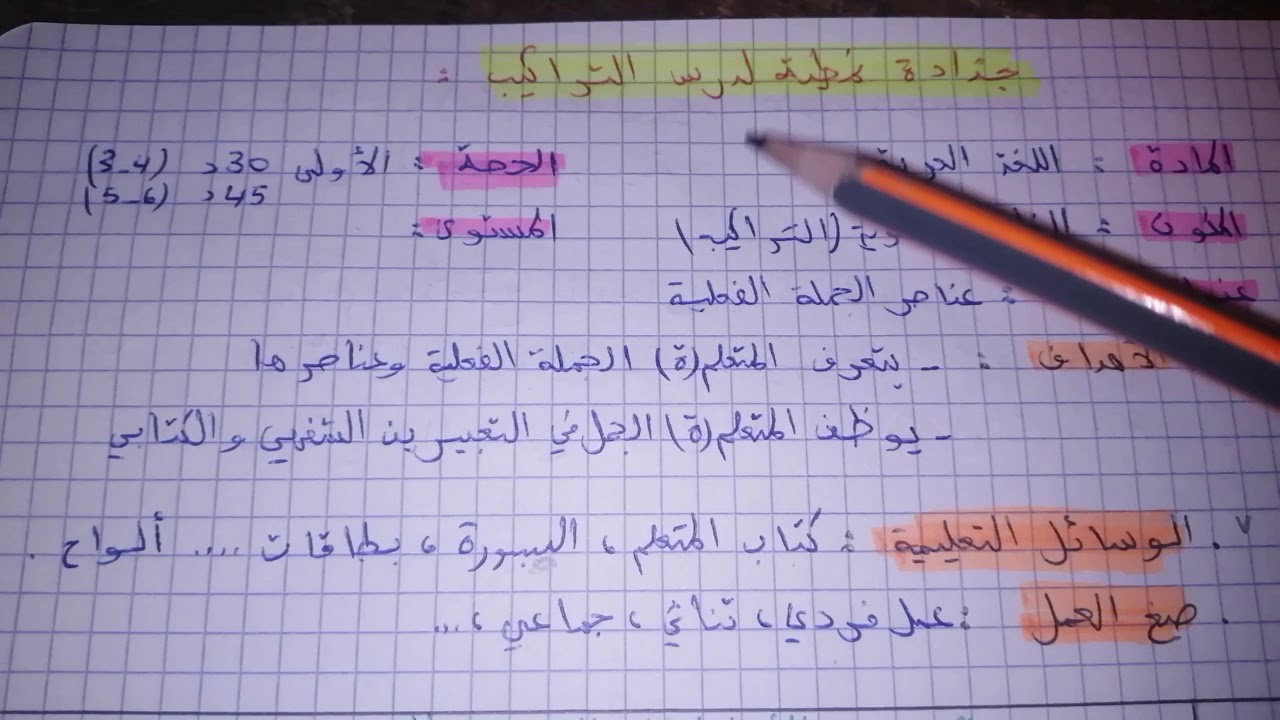 جذاذة نمطية لدرس التراكيب :
المادة : اللغة الحصة : الأولى 30د (3-4)
45د (5-6)
المكون : (التراكيب) المستوى :
: عناصر الجملة الفعلية
الأهداف : - يتعرف المتعلم(ة) الجملة الفعلية وعناصرها
- يوظف المتعلم(ة) الجمل في التعبيرين الشفهي والكتابي
. الوسائل التعليمية : كتاب المتعلم ، السبورة ، بطاقات .... ألواح .
. صيغ العمل : عمل فردي ، ثنائي ، جماعي ، ...